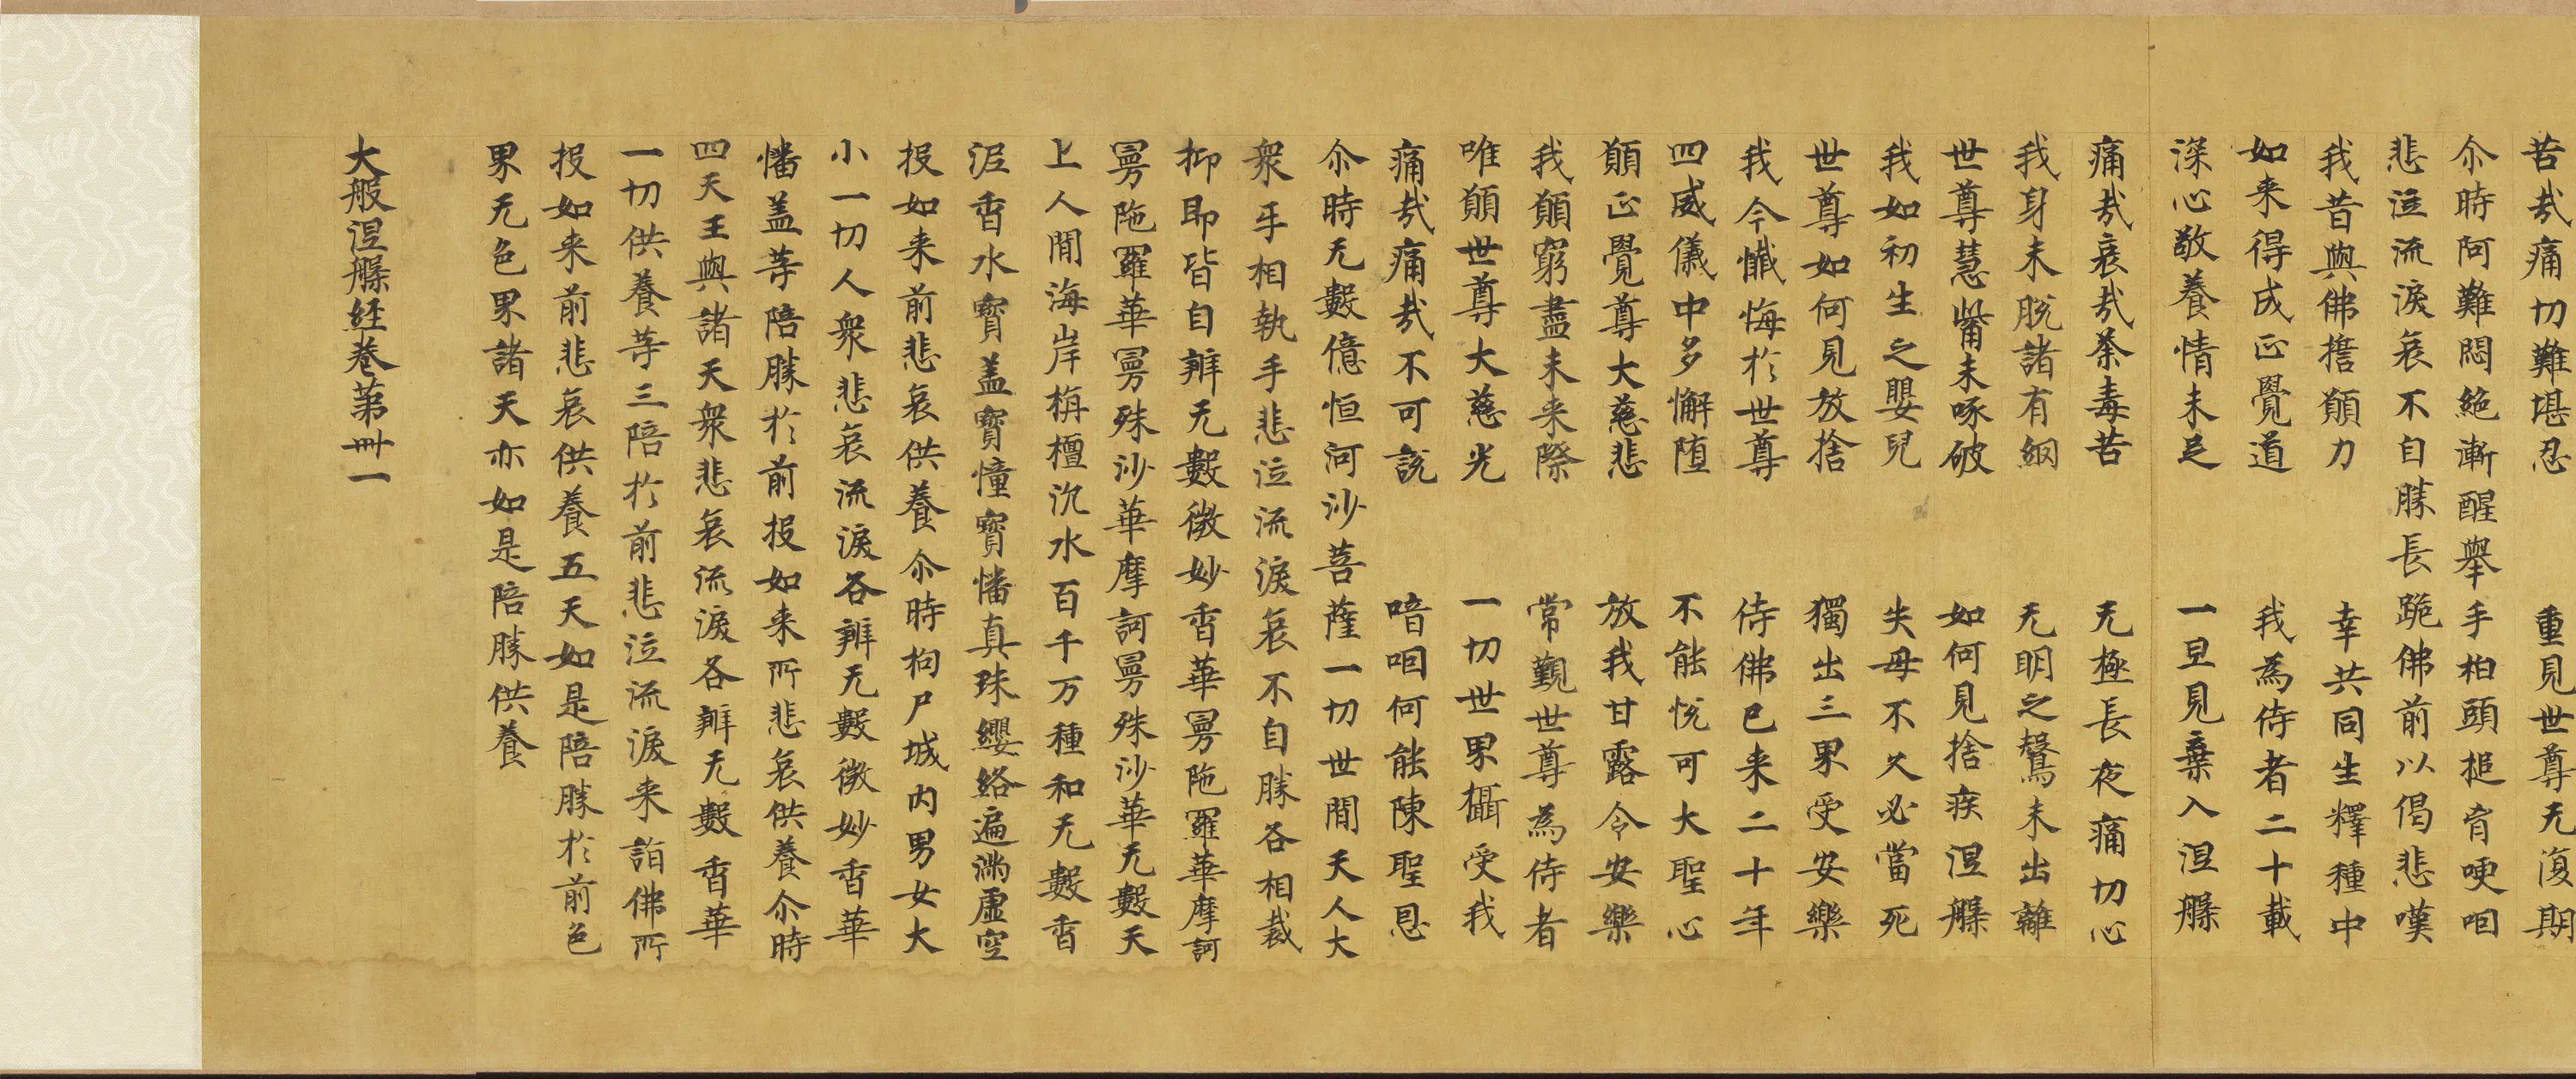 苦㦲痛切難堪忍　重見世尊无復期
尒時阿難悶絶漸醒舉手拍頭搥胷哽咽
悲泣流淚哀不自勝長跪佛前以偈悲嘆
我昔與佛擔願力　幸共同生釋種中
如来得成正覺道　我為侍者二十載
深心敬養情未足　一旦見棄入涅槃
痛㦲哀㦲荼毒苦　无極長夜痛切心
我身未脫諸有網　无明之㲉未出離
世尊慧觜未啄破　如何見捨疾涅槃
我如初生之嬰兒　失母不久必當死
世尊如何見放捨　獨出三界受安樂
我今懴悔於世尊　侍佛已来二十年
四威儀中多懈墮　不能悅可大聖心
願正覺尊大慈悲　放我甘露令安樂
我願窮盡未来際　常覲世尊為侍者
唯願世尊大慈光　一切世界攝受我
痛㦲痛㦲不可說　喑咽何能陳聖恩
尒時无數億恒河沙菩薩一切世間天人大
衆手相執手悲泣流淚哀不自勝各相裁
抑即皆自辦无數微妙香華曼陁羅華摩訶
曼陁羅華曼殊沙華摩訶曼殊沙華无數天
上人間海岸栴檀沉水百千万種和无數香
泥香水寳盖寳幢寳幡真珠纓絡遍滿虚空
投如来前悲哀供養尒時拘尸城内男女大
小一切人衆悲哀流淚各辦无數微妙香華
幡盖等陪勝於前投如来所悲哀供養尒時
四天王與諸天衆悲哀流淚各辦无數香華
一切供養等三陪於前悲泣流淚来詣佛所
投如来前悲哀供養五天如是陪勝於前色
界无色界諸天亦如是陪勝供養
大般涅槃経卷第卌一